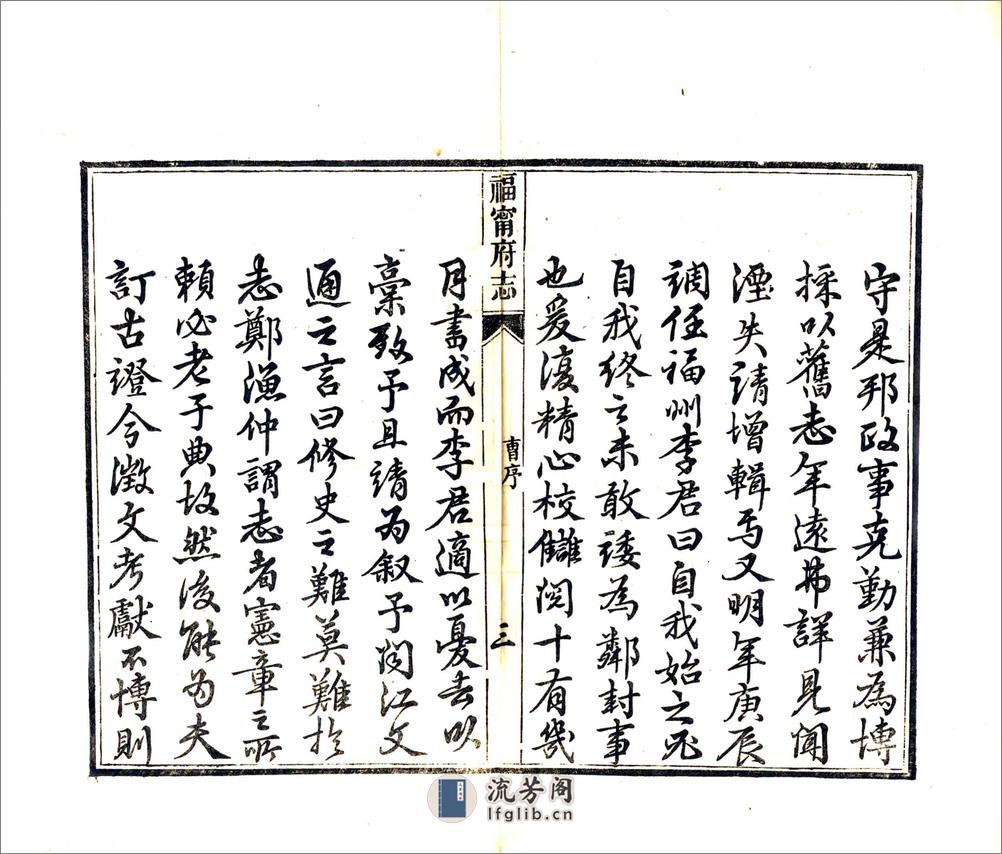 守是邦政事克勤兼為博
採以舊志年遠弗詳見聞
湮失請增輯焉又明年庚辰
調任福州李君曰自我始之必
自我終之未敢諉為鄰封事
也爰復精心校讎閱十有幾
福甯府志
曹序
三
月書成而李君適以憂去以
稾致予且請為叙予閱江文
通之言曰修史之難莫難於
志鄭漁仲謂志者憲章之所
賴必老于典故然後能为夫
訂古證今徵文考獻不博則
流芳阁
lfglib.cn